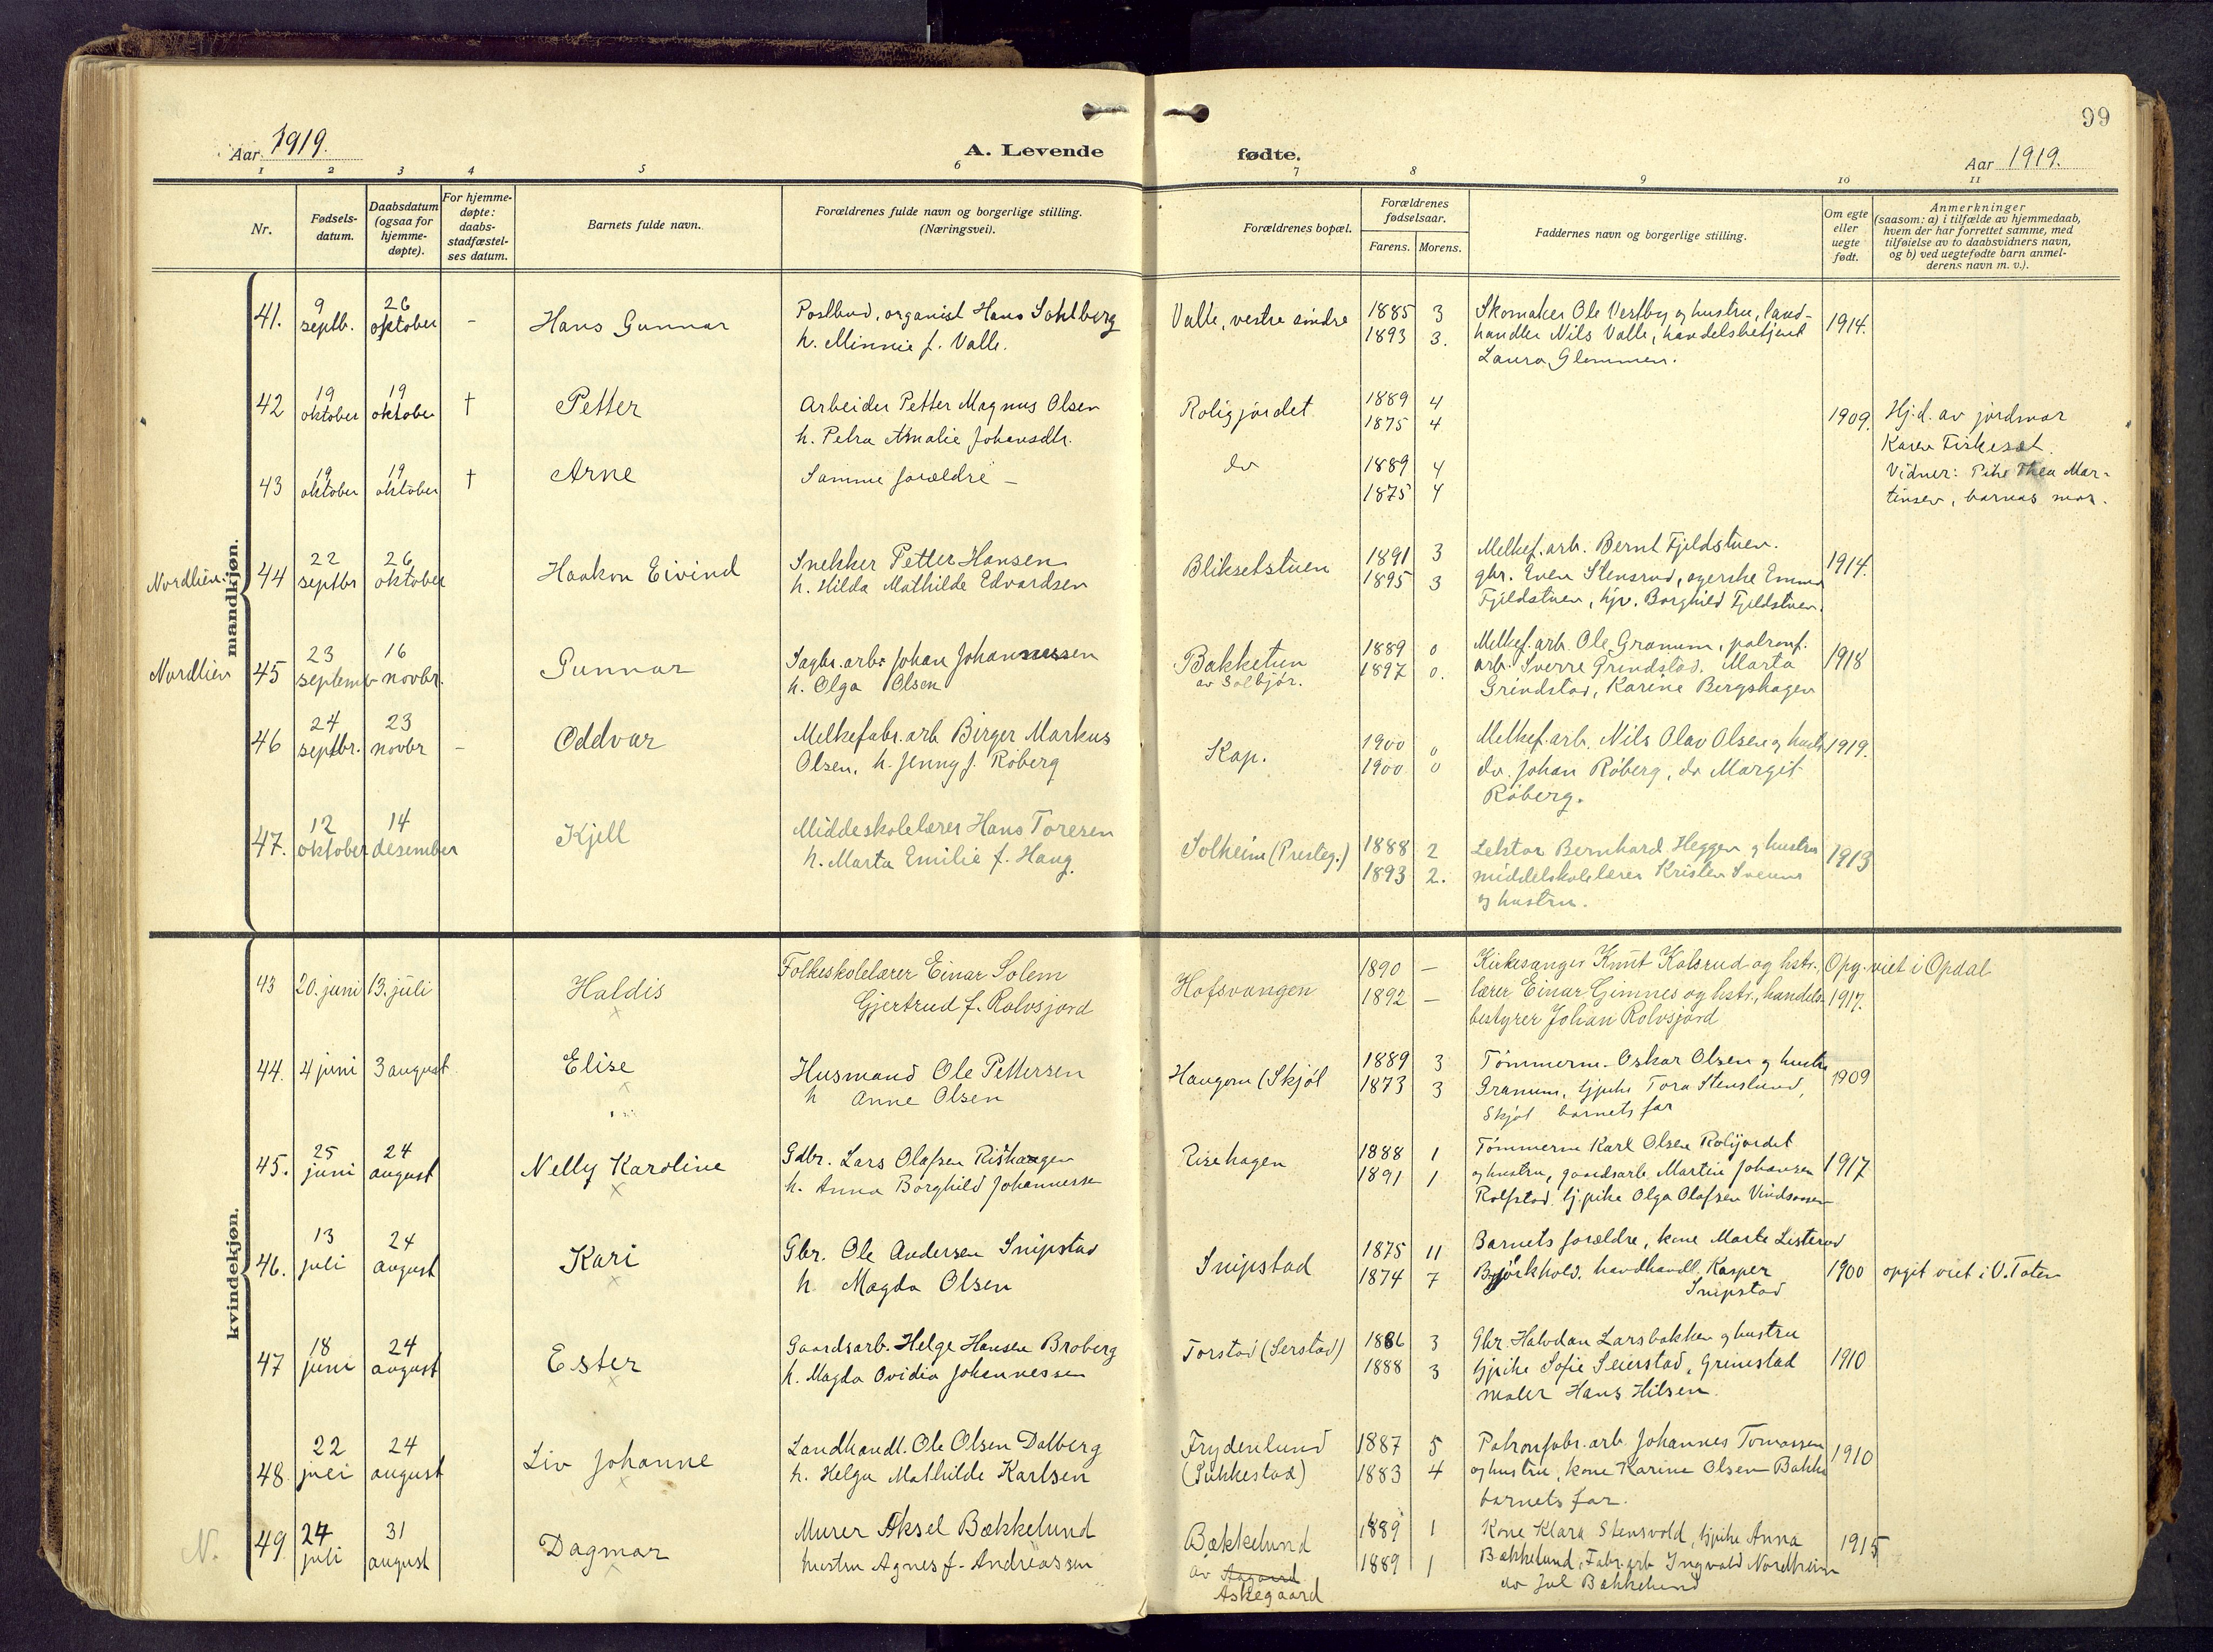 99
Aar 1919.
A. Levende
fødte.
Aar 1919.
1 2 3 4 5 6 7 8 9 10 11
Nr.
Fødsels-
datum.
Daabsdatum
(ogsaa for
hjemme-
døpte).
For hjemme-
døpte:
daabs-
stadfæstel-
ses datum.
Barnets fulde navn.
Forældrenes fulde navn og borgerlige stilling.
(Næringsvei).
Forældrenes bopæl.
Forældrenes
fødselsaar.
Farens. Morens.
Faddernes navn og borgerlige stilling.
Om egte
eller
uegte
født.
Anmerkninger
(saasom: a) i tilfælde av hjemmedaab,
hvem der har forrettet samme, med
tilføielse av to daabsvidners navn,
og b) ved uegtefødte barn anmel-
derens navn m. v.).
mandkjøn.
41. 9 septb. 26 oktober - Hans Gunnar
Postbud, organist Hans Sohlberg
h. Minnie f. Valle.
Valle, vestre søndre
1885 3
1893 3.
Skomaker Ole Vestby og hustru, land-
handler Nils Valle, handelsbetjent
Laura Glemmen.
1914.
42 19 oktober 19 oktober † Petter
Arbeider Petter Magnus Olsen
h. Petra Amalie Johansdtr.
Roligjordet
1889 4
1875 4
1909.
Hj.d. av jordmor
Karen Fiskeset.
43 19 oktober 19 oktober † Arne
Samme forældre -
do
1889 4
1875 4
Vidner: Pike Thea Mar-
tinsen, barnas mor.
Nordlien.
44 22 septbr 26 oktober Haakon Eivind
Snekker Petter Hansen
h. Hilda Mathilde Edvardsen
Bliksetstuen
1891 3
1895 3
Melkef.arb. Bernt Fjeldstuen.
gbr. Even Stensrud, syerske Emma
Fjeldstuen, hjv. Borghild Fjeldstuen.
1914.
Nordlien
45 23 septemb 16 novbr. Gunnar
Sagbr.arb. Johan Johannessen
h. Olga Olsen
Bakketun
av Solbjør.
1889 0
1897 0.
Melkef.arb. Ole Granum, patronf.
arb. Sverre Grindstad. Marta
Grindstad, Karine Bergshagen
1918
46 24 septbr. 23 novbr - Oddvar
Melkefabr.arb Birger Markus
Olsen, h. Jenny f. Røberg
Kap.
1900 0
1900 0
Melkef.arb. Nils Olav Olsen og hustr
do. Johan Røberg, do Margit
Røberg.
1919.
47. 12 oktober 14 desember Kjell
Middeskolelærer Hans Toresen
h. Marta Emilie f. Haug.
Solheim (Presteg.)
1888 2
1893 2.
Lektor Bernhard Heggen og hustru
middelskolelærer Kristen
og hustru.
1913
kvindekjøn.
43 20. juni 13. juli Haldis
Folkeskolelærer Einar Solem
Gjertrud f. Rolvsjord
Hofsvangen
1890 -
1892 -
Kirkesanger Knut Kolsrud og hstr.,
lærer Einar Gimnes og hstr., handels-
bestyrer Johan Rolvsjord
Opg. viet i Opdal
1917.
44. 4 juni 3 august Elise
Husmand Ole Pettersen
h Anne Olsen
Haugom (Skjøl
1889 3
1873 3
Tømmerm. Oskar Olsen og hustru
Granum, tjpike Tora Stenslund,
Skjøl barnets far
1909
45. 25 juni 24 august Nelly Karoline
Gdbr. Lars Olafsen Rishagen
h. Anna Borghild Johannessen
Risehagen
1888 1
1891 1
Tømmerm Karl Olsen Rolijordet
og hustru, gaardsarb. Martin Johansen
Rolfstad tj.pike Olga Olafsen
1917
46. 13 juli 24 august Kari
Gbr. Ole Andersen Snipstad
h Magda Olsen
Snipstad
1875 11
1874 7
Barnets forældre, kone Marte Listerud
Bjørkhold. handhandl. Kasper
Snipstad
1900
opgit viet i V. Toten
47 18 juni 24 august Ester
Gaardsarb. Helge Hansen Broberg
h. Magda Ovidia Johannessen
Torstad (Serstad)
1886 3
1888 3
Gbr. Halvdan Larsbakken og hustru
tjpike Sofie Seierstad, Grimestad
maler Hans Hilsen.
1910
48. 22 juli 24 august Liv Johanne
Landhandl. Ole Olsen Dalberg
h. Helga Mathilde Karlsen
Frydenlund
(Sukkestad)
1887 5
1883 4
Patronfabr.arb. Johannes Tomassen
og hustru, kone Karine Olsen Bakke
barnets far.
1910
N.
49. 24 juli 31 august Dagmar
Murer Aksel Bækkelund
hustru Agnes f. Andreassen
Bækkelund
av Aagaard
Askegaard
1889 1
1889 1
Kone Klara Stensvold, tjpike Anna
Bækkelund, Fabr.arb Ingvald Nordheim
do Jul Bækkelund
1915